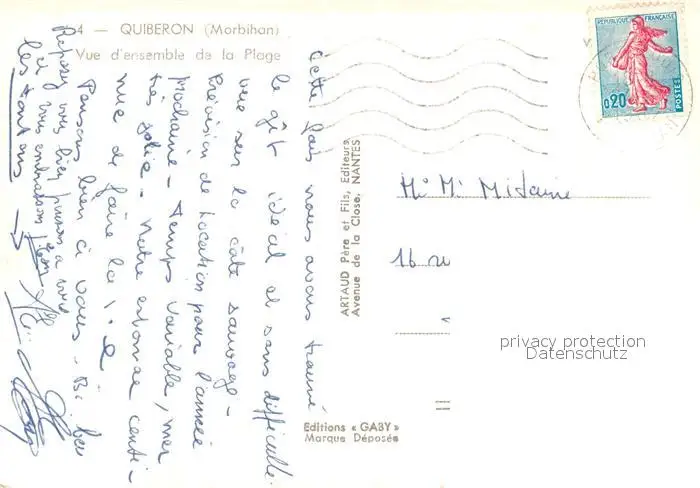 4 — QUIBERON (Morbihan)
Vue d'ensemble de la Plage
Cette fois nous avons trouvé
le gît idéal et sans difficulté
vue sur la côte sauvage -
Prévision de location pour l'année
prochaine - Temps variable, mer
très jolie - Notre estomac conti-
nue de faire la
Pensons bien à vous -
Reposez vous bien
vous
et vous embrassons
les tontons
ARTAUD Père et Fils, Editeurs
Avenue de la Close, NANTES
Editions « GABY »
Marque Déposée
REPUBLIQUE FRANÇAISE
0,20
POSTES
16
privacy protection
Datenschutz